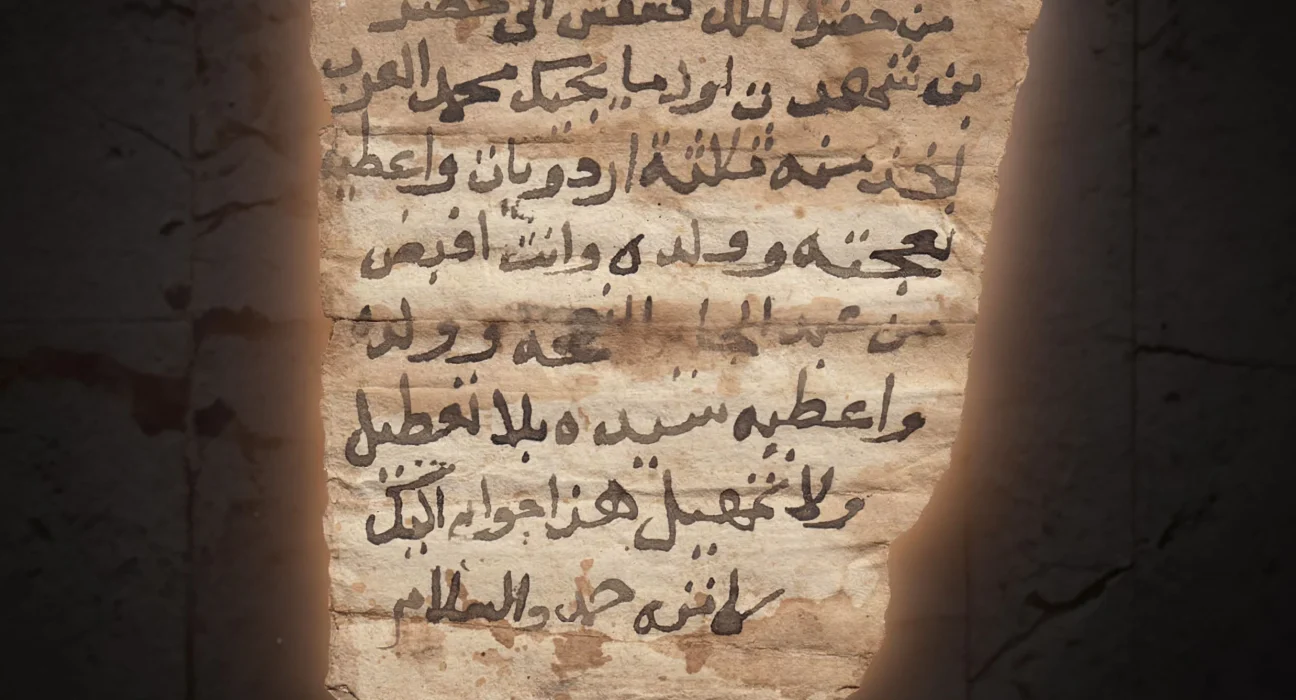 من حضرة الملك قشقش الى خضر
بن شهد ن اول ما يجيك محمد العرب
اخذ منه ثلاثة اردويات واعطيه
نعجته وولده وانت اقبض
من عبد الجابر النعجه وولده
واعطيه سيده بلا تعطيل
ولا تمهيل هذا جوابي اليك
لا غيره حد والسلام